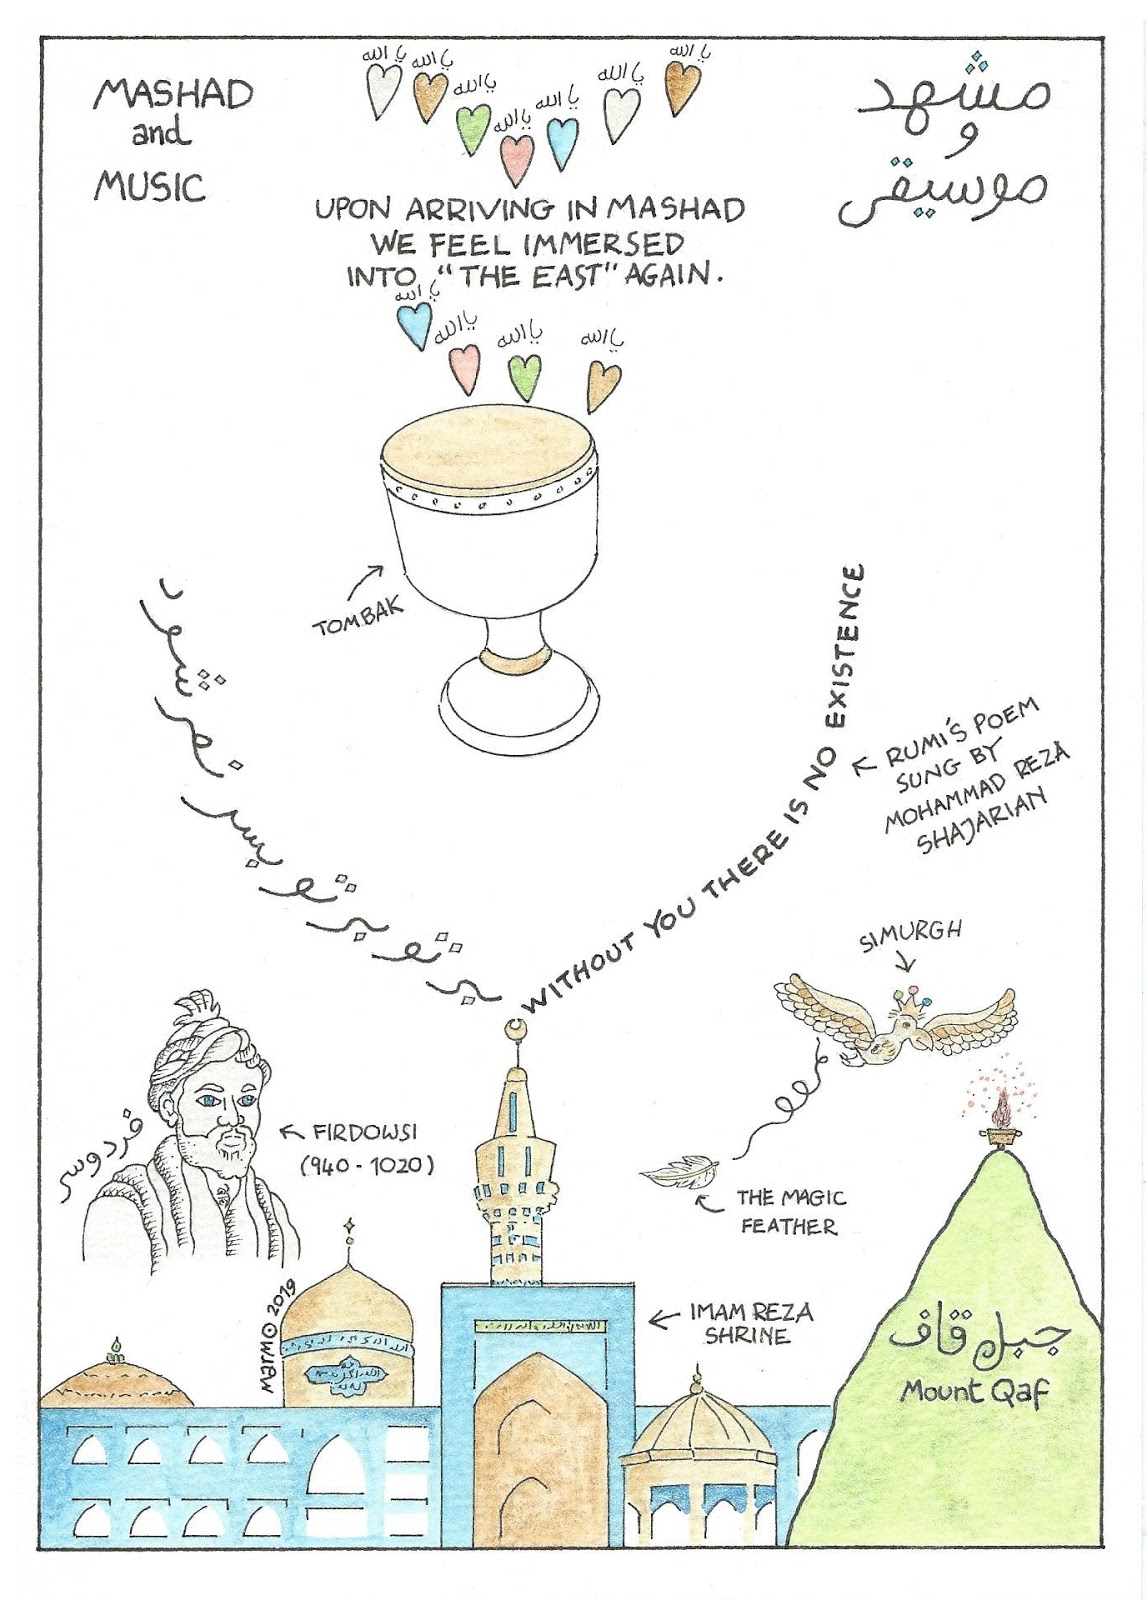 MASHAD
and
MUSIC
يا الله
يا الله
يا الله
يا الله
يا الله
يا الله
يا الله
مشهد
و
موسيقى
UPON ARRIVING IN MASHAD
WE FEEL IMMERSED
INTO "THE EAST" AGAIN.
يا الله
يا الله
يا الله
يا الله
TOMBAK
بی تو بی تو بسر نمی شود
WITHOUT YOU THERE IS NO EXISTENCE
RUMI'S POEM
SUNG BY
MOHAMMAD REZA
SHAJARIAN
SIMURGH
THE MAGIC
FEATHER
فردوسی
FIRDOWSI
(940 - 1020)
MARMO 2019
IMAM REZA
SHRINE
جبل قاف
Mount Qaf